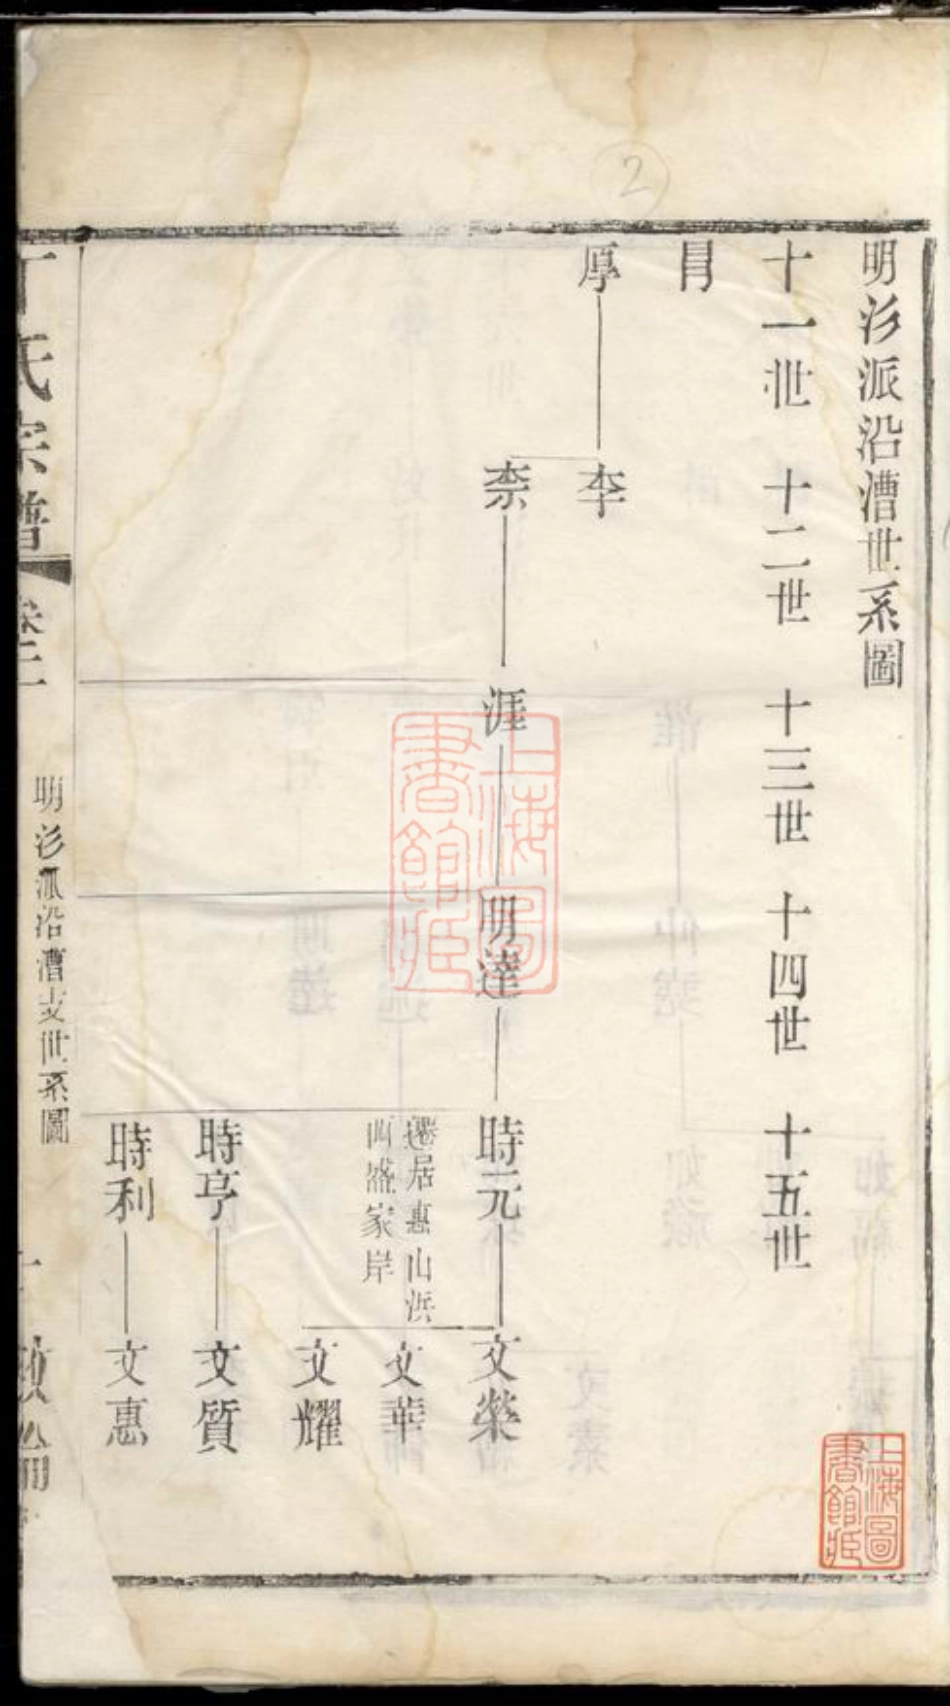 2
明彡派沿漕世系圖
十一世 十二世 十三世 十四世 十五世
厚 李
柰 涯 明達 時元 文榮
遷居惠山浜
盛家岸 文華
文耀
時亨 文質
時利 文惠
丁氏宗譜 卷二 明彡派沿漕支世系圖
上海圖書館藏
上海圖書館藏